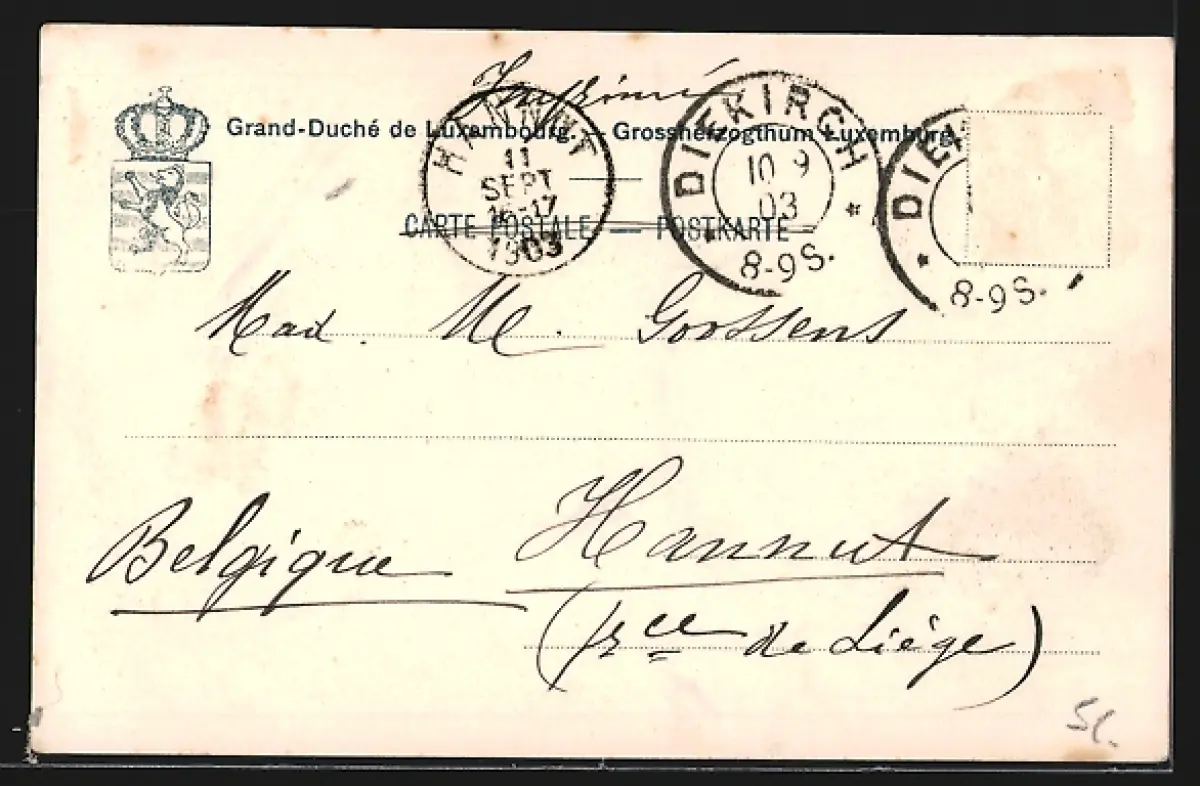 Imprimé
Grand-Duché de Luxembourg. — Grossherzogthum Luxemburg.
HANNUT
11
SEPT
16-17
1903
DIEKIRCH
10 9
03
8-9 S.
DIEK
8-9 S.
CARTE POSTALE — POSTKARTE
Mad. M. Goossens
Belgique Hannut
(Pce de Liége)